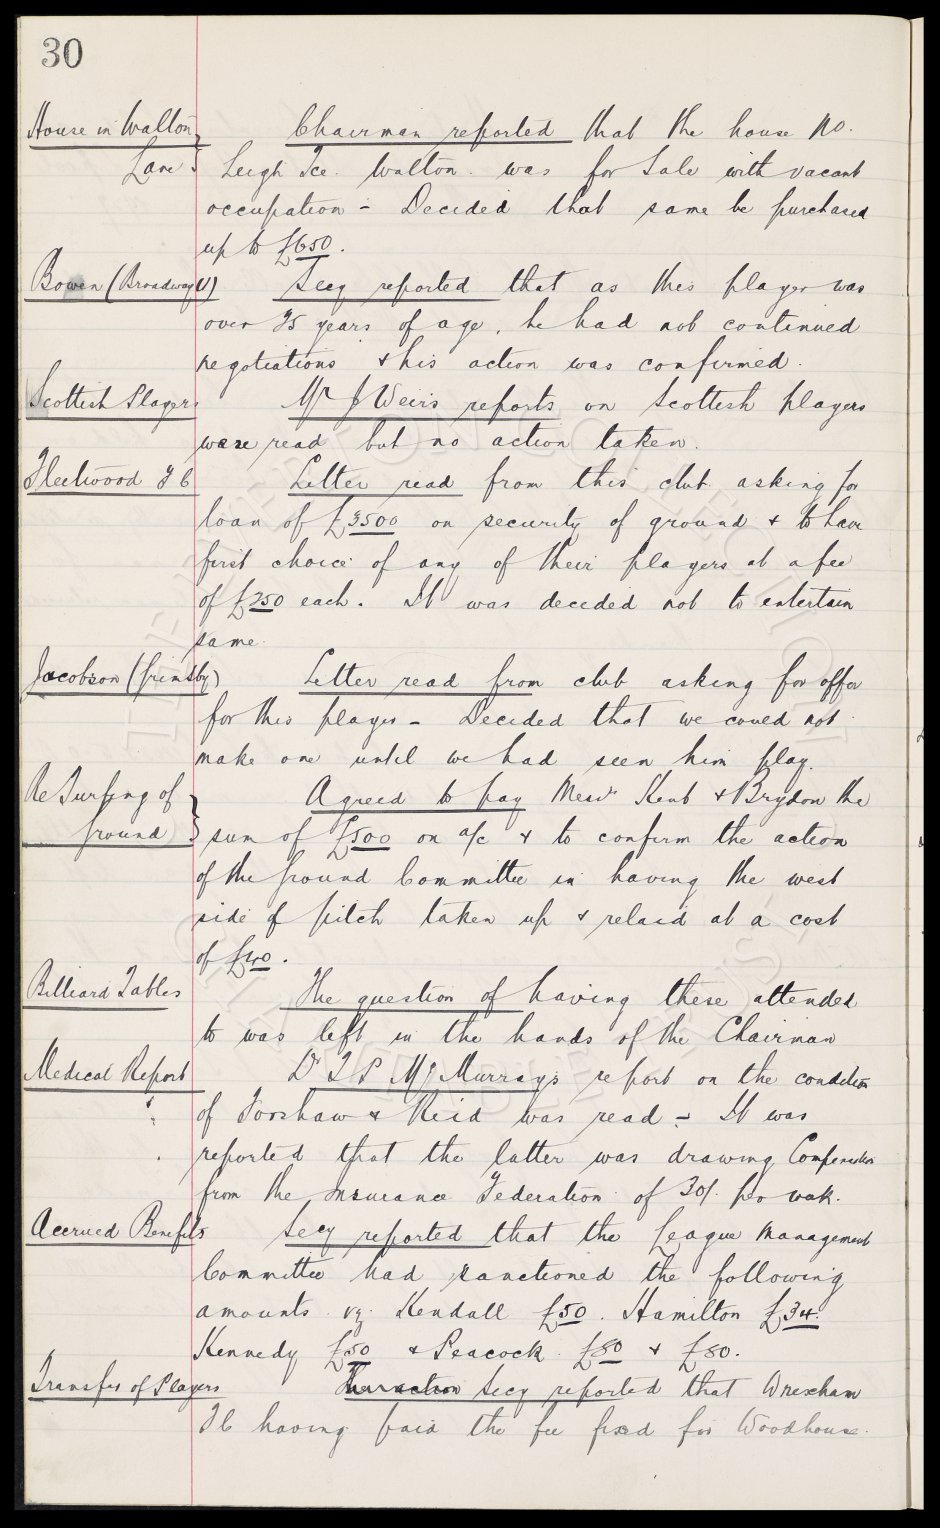 30
House in Walton Lane
Chairman reported that the house No.
Leigh Tce. Walton. was for Sale with vacant
occupation - Decided that same be purchased
up to £650.
Bowen (Broadway U)
Secy reported that as this player was
over 25 years of age, he had not continued
negotiations & his action was confirmed.
Scottish Players
Mr J Weir's reports on Scottish players
were read but no action taken.
Fleetwood F C
Letter read from this club asking for
loan of £3500 on security of ground & to have
first choice of any of their players at a fee
of £250 each. It was decided not to entertain
same.
Jacobson (Grimsby)
Letter read from club asking for offer
for this player - Decided that we could not
make one until we had seen him play.
Re Turfing of Ground
Agreed to pay Messrs Kent & Brydon the
sum of £500 on a/c & to confirm the action
of the Ground Committee in having the west
side of pitch taken up & relaid at a cost
of £40.
Billiard Tables
The question of having these attended
to was left in the hands of the Chairman
Medical Report
Dr T P McMurray's report on the condition
of Forshaw & Reid was read - It was
reported that the latter was drawing Compensation
from the Insurance Federation of 30/- per week.
Accrued Benefits
Secy reported that the League Management
Committee had sanctioned the following
amounts. vz. Kendall £50. Hamilton £34.
Kennedy £50 & Peacock £80 & £80.
Transfer of Players
Secy reported that Wrexham
F C having paid the fee fixed for Woodhouse.